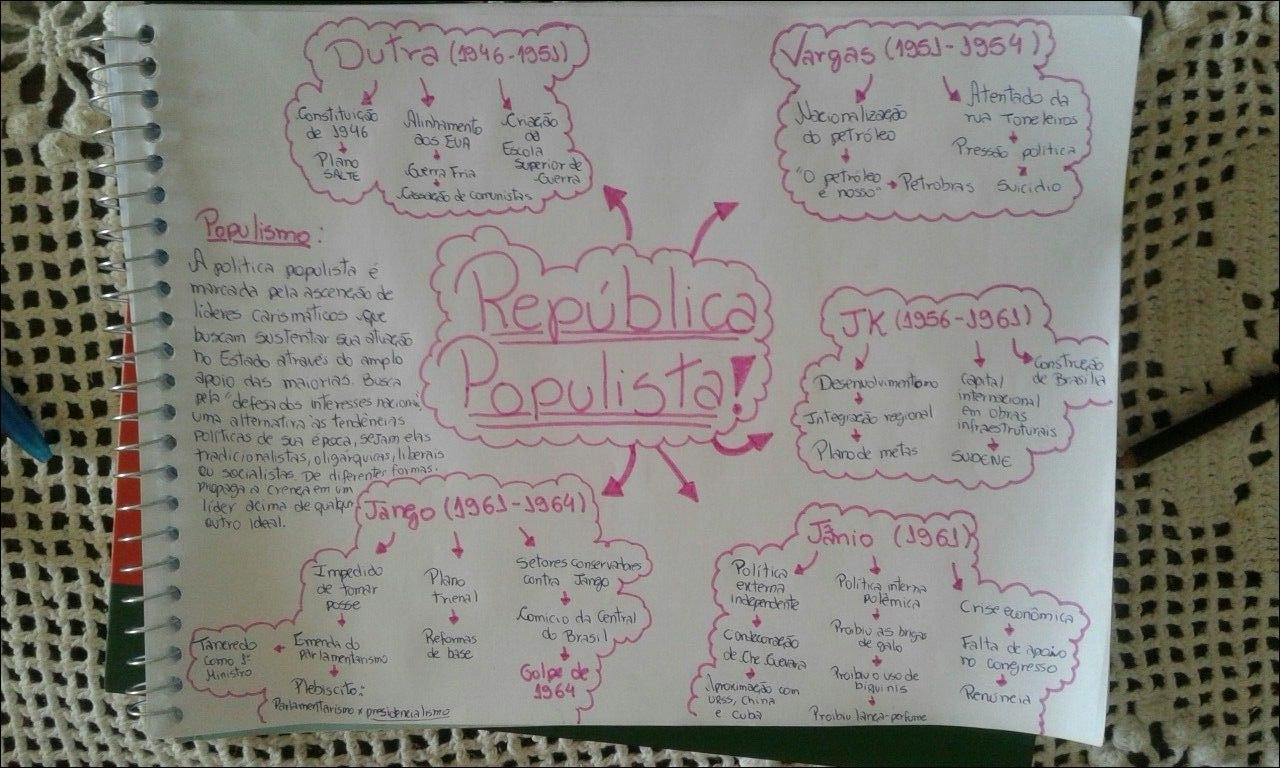 Dutra (1946-1951)
Constituição
de 1946
Plano
SALTE
Alinhamento
aos EUA
Guerra Fria
Cassação de comunistas
Criação
da
Escola
Superior de
Guerra
Vargas (1951-1954)
Nacionalização
do petróleo
"O petróleo
é nosso"
Petrobras
Atentado da
rua Toneleiros
Pressão política
Suicídio
Populismo:
A política populista é
marcada pela ascenção de
líderes carismáticos que
buscam sustentar sua atuação
no Estado através do amplo
apoio das maiorias. Busca
pela "defesa dos interesses nacionai
uma alternativa às tendências
políticas de sua época, sejam elas
tradicionalistas, oligárquicas, liberais
ou socialistas. De diferentes formas.
propaga a crença em um
líder acima de qualquer
outro ideal.
República
Populista!
JK (1956-1961)
Desenvolvimentismo
Integração regional
Plano de metas
Capital
internacional
em obras
infraestruturais
SUDENE
Construção
de Brasília
Jango (1961-1964)
Impedido
de tomar
posse
Emenda do
parlamentarismo
Tancredo
como 1º
Ministro
Plebiscito:
Parlamentarismo x presidencialismo
Plano
trienal
Reformas
de base
Setores conservadores
contra Jango
Comício da Central
do Brasil
Golpe de
1964
Jânio (1961)
Política
externa
independente
Condecoração
de Che Guevara
Aproximação com
URSS, China
e Cuba
Política interna
polêmica
Proibiu as brigas
de galo
Proibiu o uso de
biquínis
Proibiu lança-perfume
Crise econômica
Falta de apoio
no congresso
Renúncia